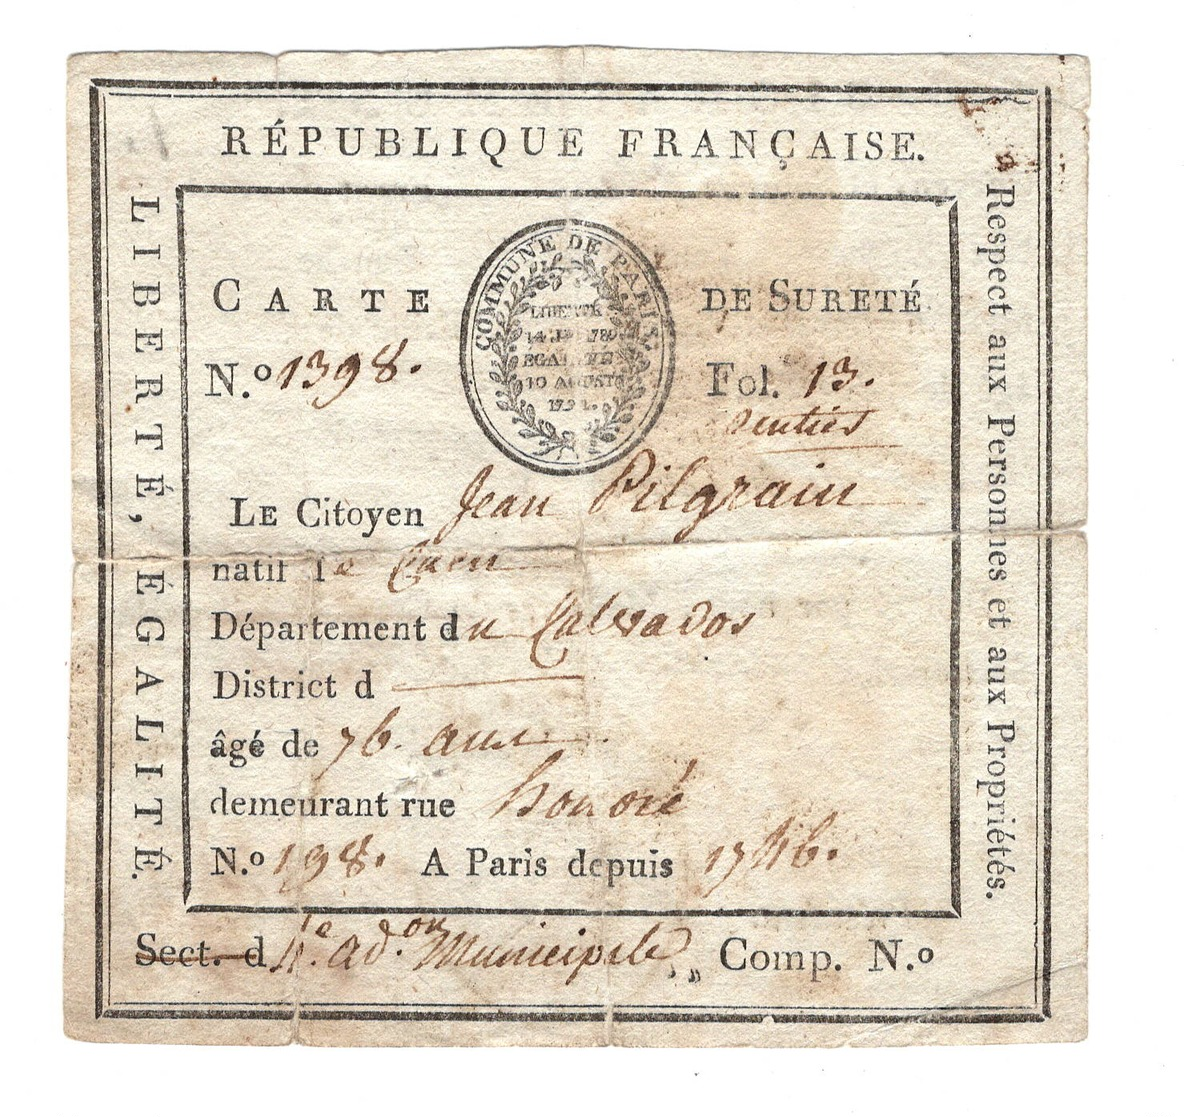 RÉPUBLIQUE FRANÇAISE.
LIBERTÉ, ÉGALITÉ.
COMMUNE DE PARIS.
LIBERTÉ
14 J 1789
ÉGALITÉ
10 AOUST
1792.
CARTE DE SURETÉ
N.º 1398. Fol. 13.
Rentier
LE Citoyen Jean Pilgrain
natif de Caen
Département du Calvados
District d
âgé de 76. ans
demeurant rue honoré
N.º 198. A Paris depuis 1746.
Sect. d 4.e ad.on Municipale, Comp. N.º
Respect aux Personnes et aux Propriétés.